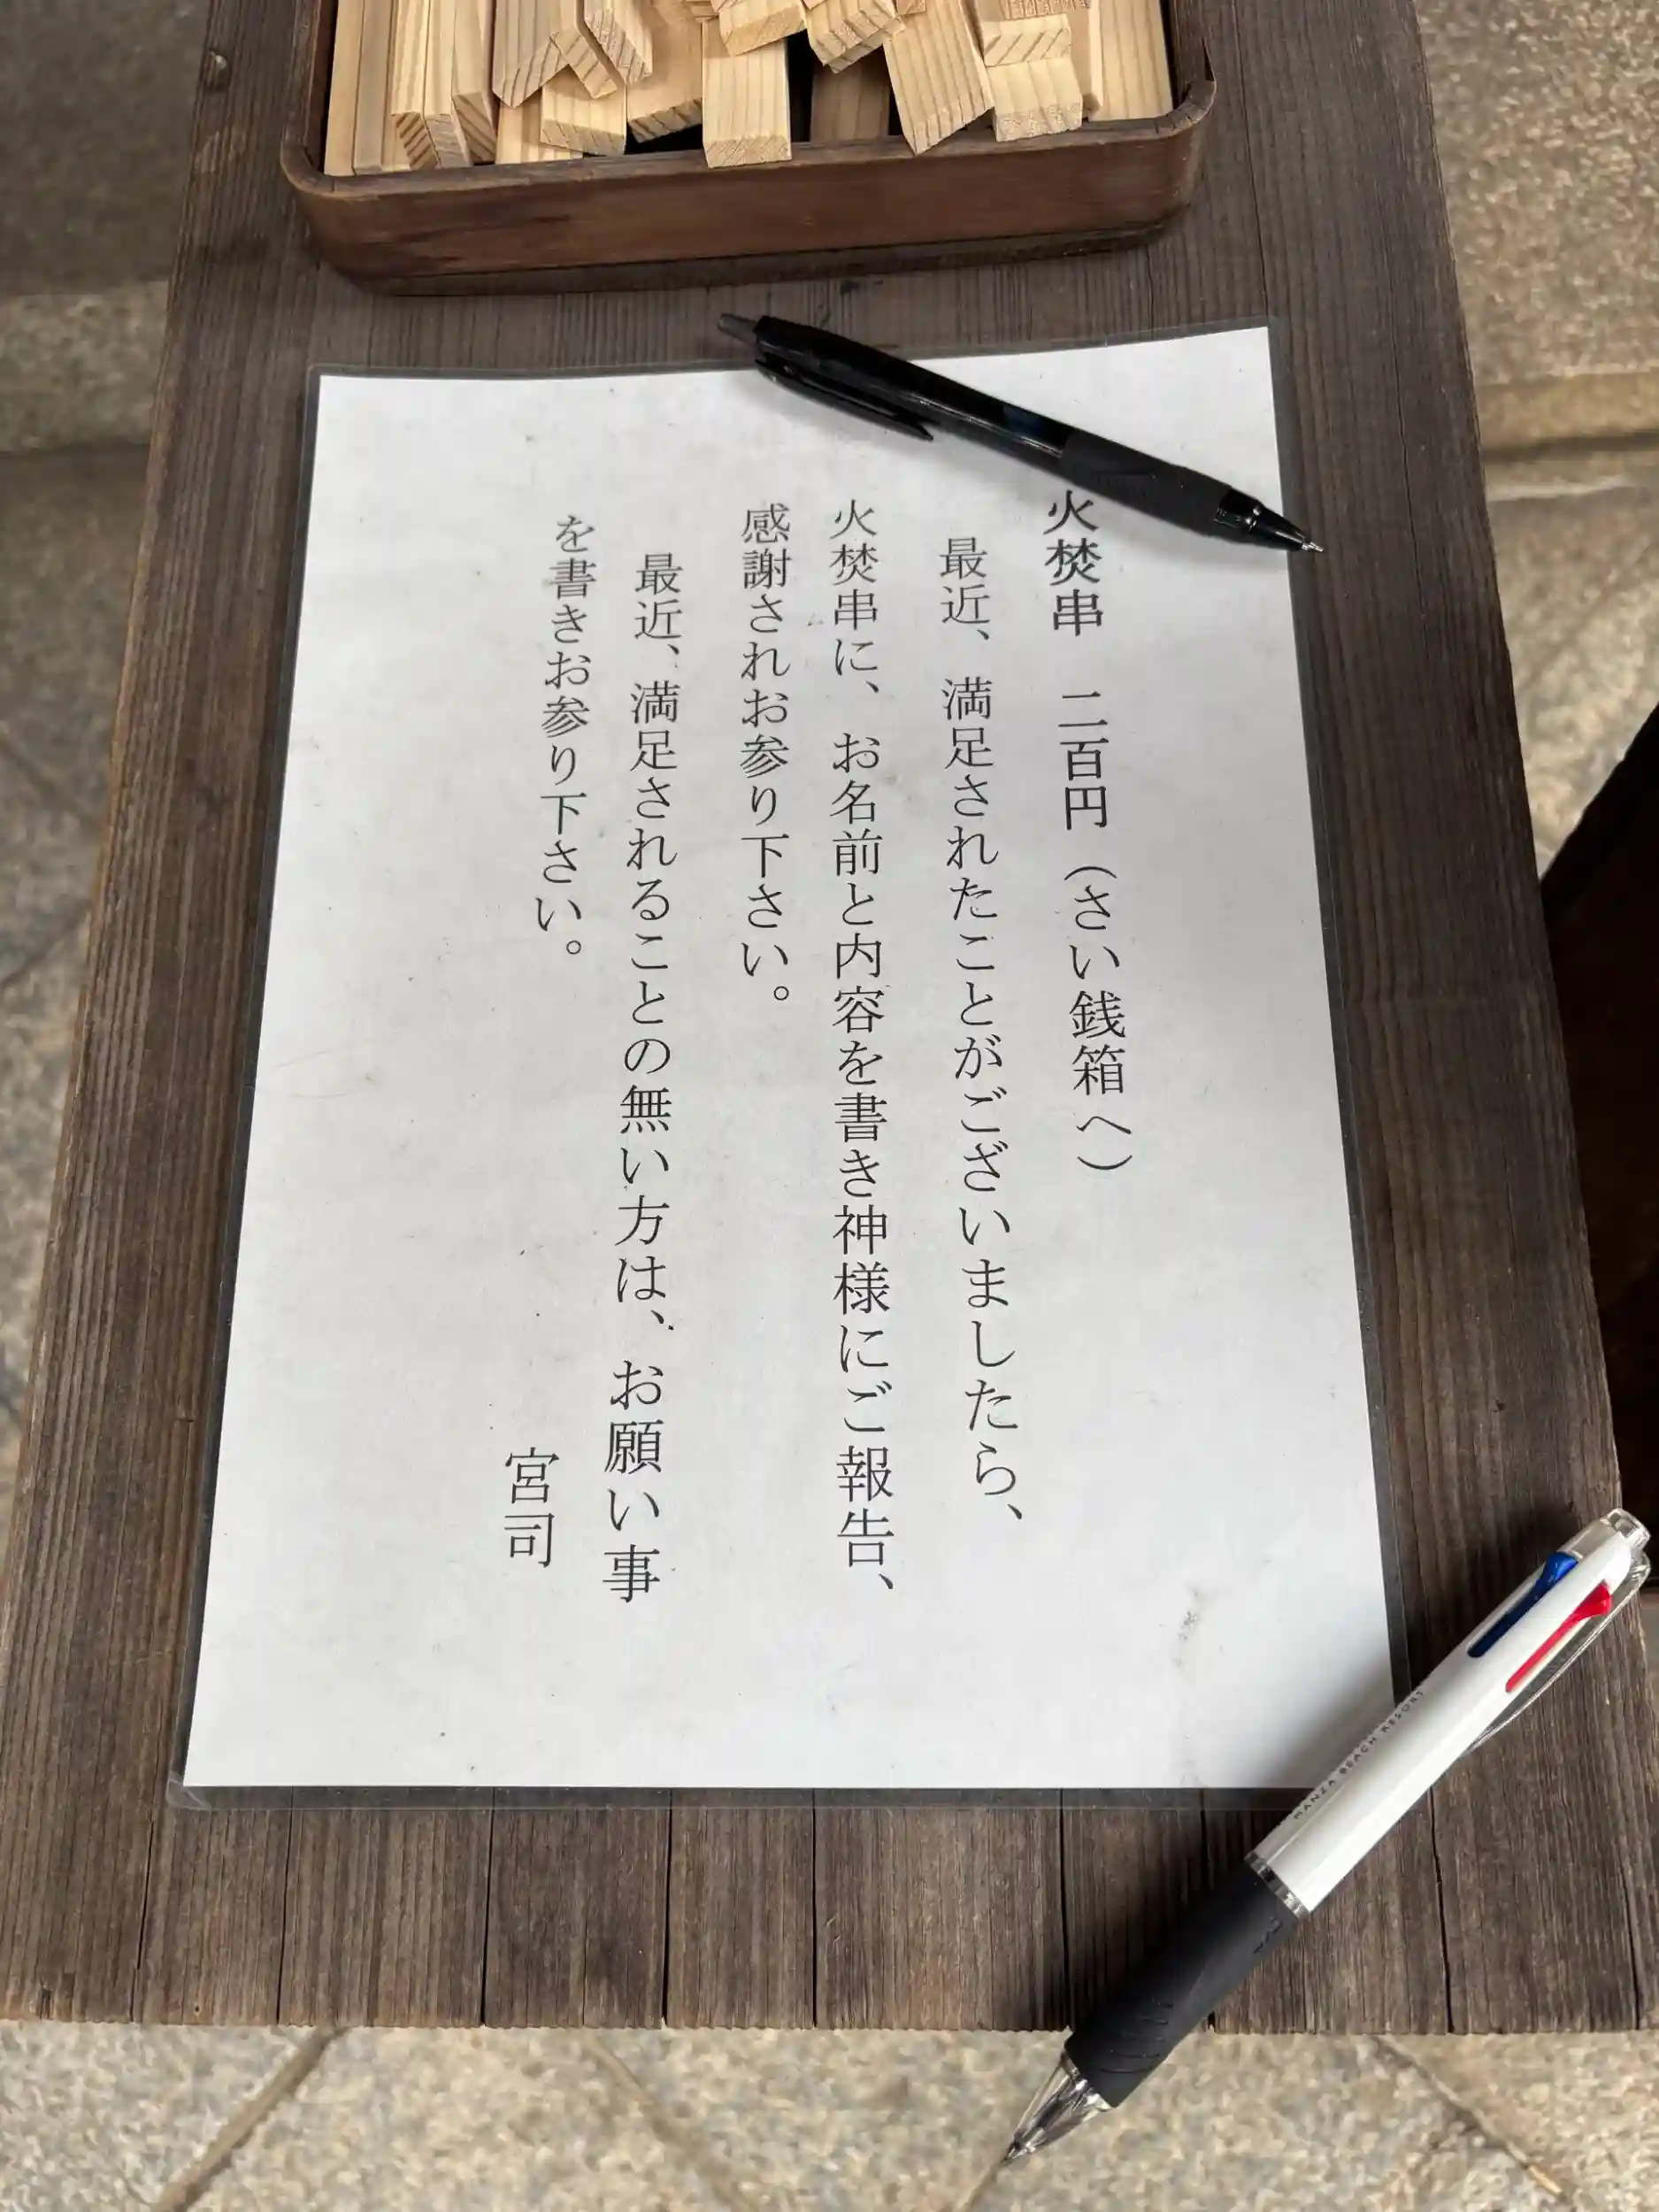 火焚串　二百円（さい銭箱へ）
最近、満足されたことがございましたら、
火焚串に、お名前と内容を書き神様にご報告、
感謝されお参り下さい。
最近、満足されることの無い方は、お願い事
を書きお参り下さい。
宮司
MANZA BEACH RESORT